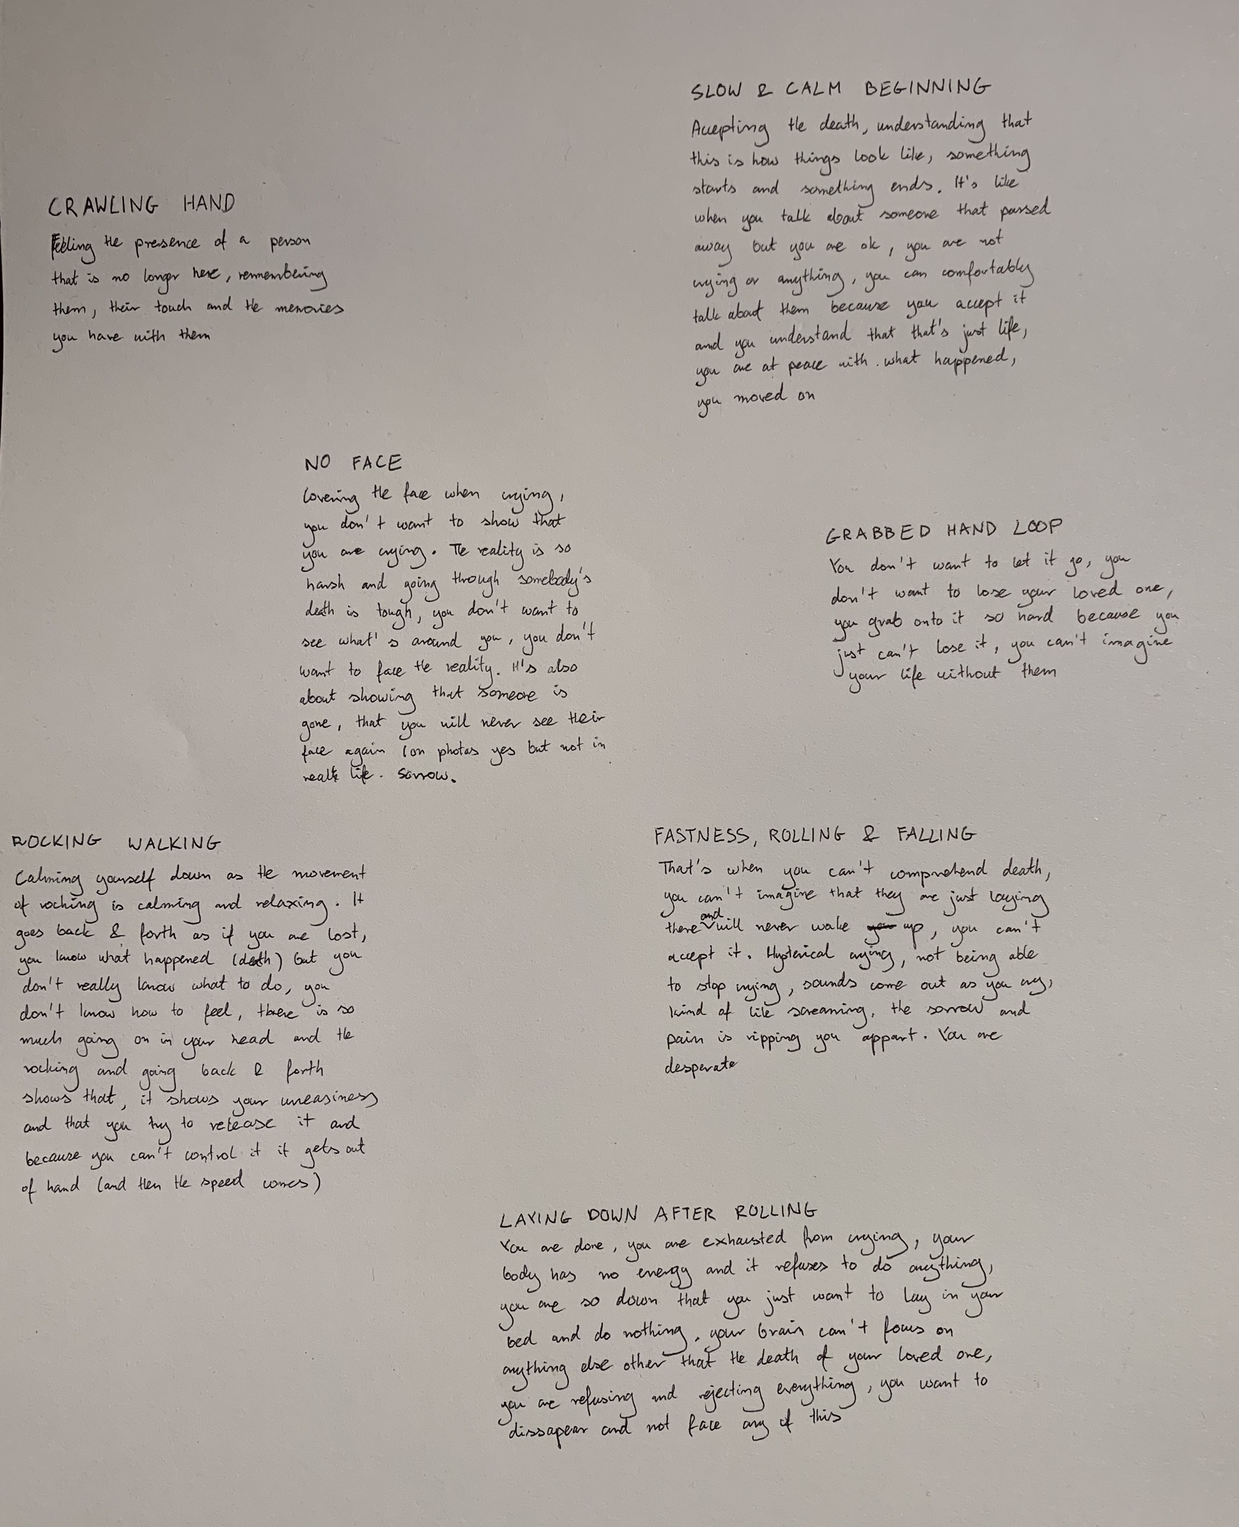 SLOW & CALM BEGINNING
Accepting the death, understanding that
this is how things look like, something
starts and something ends. It's like
when you talk about someone that passed
away but you are ok, you are not
crying or anything, you can comfortably
talk about them because you accept it
and you understand that that's just life,
you are at peace with what happened,
you moved on
CRAWLING HAND
Feeling the presence of a person
that is no longer here, remembering
them, their touch and the memories
you have with them
NO FACE
Covering the face when crying,
you don't want to show that
you are crying. The reality is so
harsh and going through somebody's
death is tough, you don't want to
see what's around you, you don't
want to face the reality. It's also
about showing that someone is
gone, that you will never see their
face again (on photos yes but not in
real life. Sorrow.
GRABBED HAND LOOP
You don't want to let it go, you
don't want to lose your loved one,
you grab onto it so hard because you
just can't lose it, you can't imagine
your life without them
ROCKING WALKING
Calming yourself down as the movement
of rocking is calming and relaxing. It
goes back & forth as if you are lost,
you know what happened (death) but you
don't really know what to do, you
don't know how to feel, there is so
much going on in your head and the
rocking and going back & forth
shows that, it shows your uneasiness
and that you try to release it and
because you can't control it it gets out
of hand (and then the speed comes)
FASTNESS, ROLLING & FALLING
That's when you can't comprehend death,
you can't imagine that they are just laying
there and will never wake up, you can't
accept it. Hysterical crying, not being able
to stop crying, sounds come out as you cry,
kind of like screaming, the sorrow and
pain is ripping you appart. You are
desperate
LAYING DOWN AFTER ROLLING
You are done, you are exhausted from crying, your
body has no energy and it refuses to do anything,
you are so down that you just want to lay in your
bed and do nothing, your brain can't focus on
anything else other that the death of your loved one,
you are refusing and rejecting everything, you want to
dissapear and not face any of this